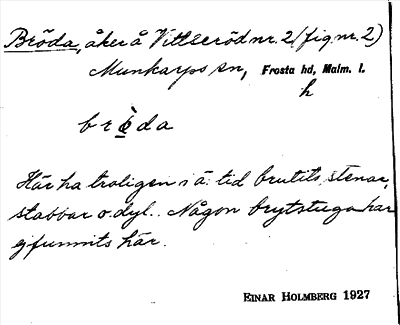 Bröda, åker å Vittseröd nr. 2 (fig. nr. 2)
Munkarps sn, Frosta hd, Malm. l.
h
brèda
Här ha troligen i ä. tid brutits stenar,
stabbar o. dyl.. Någon brytstuga har
ej funnits här.
EINAR HOLMBERG 1927